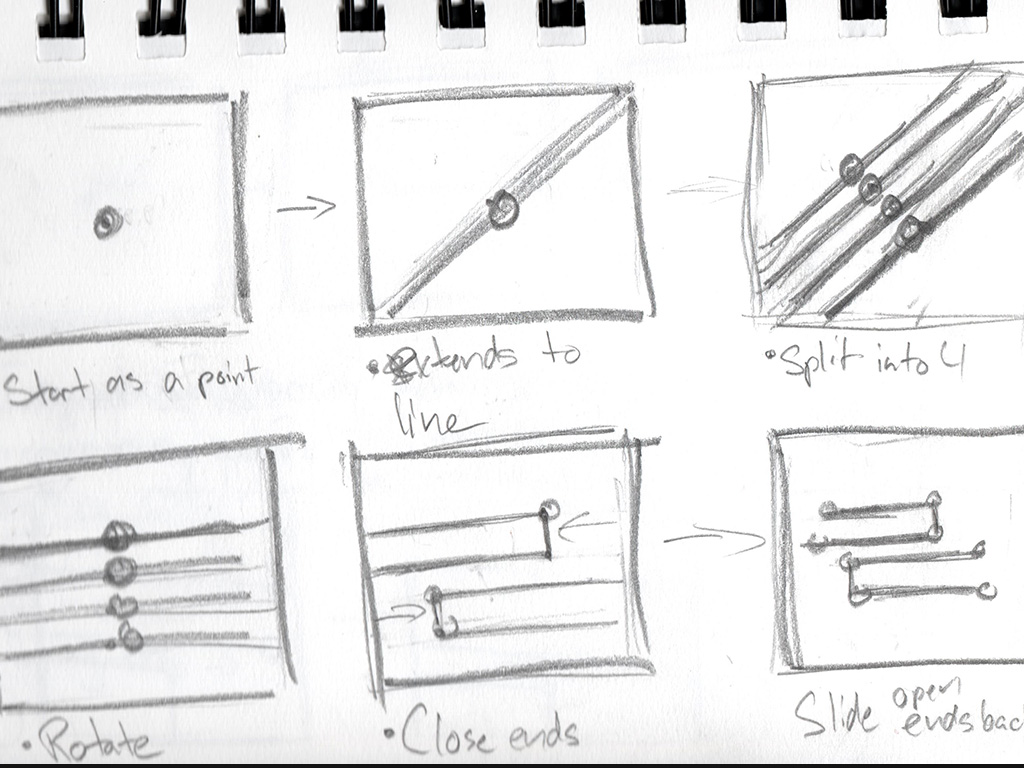 Start as a point
• Extends to
line
• Split into 4
• Rotate
• Close ends
Slide open
ends bac